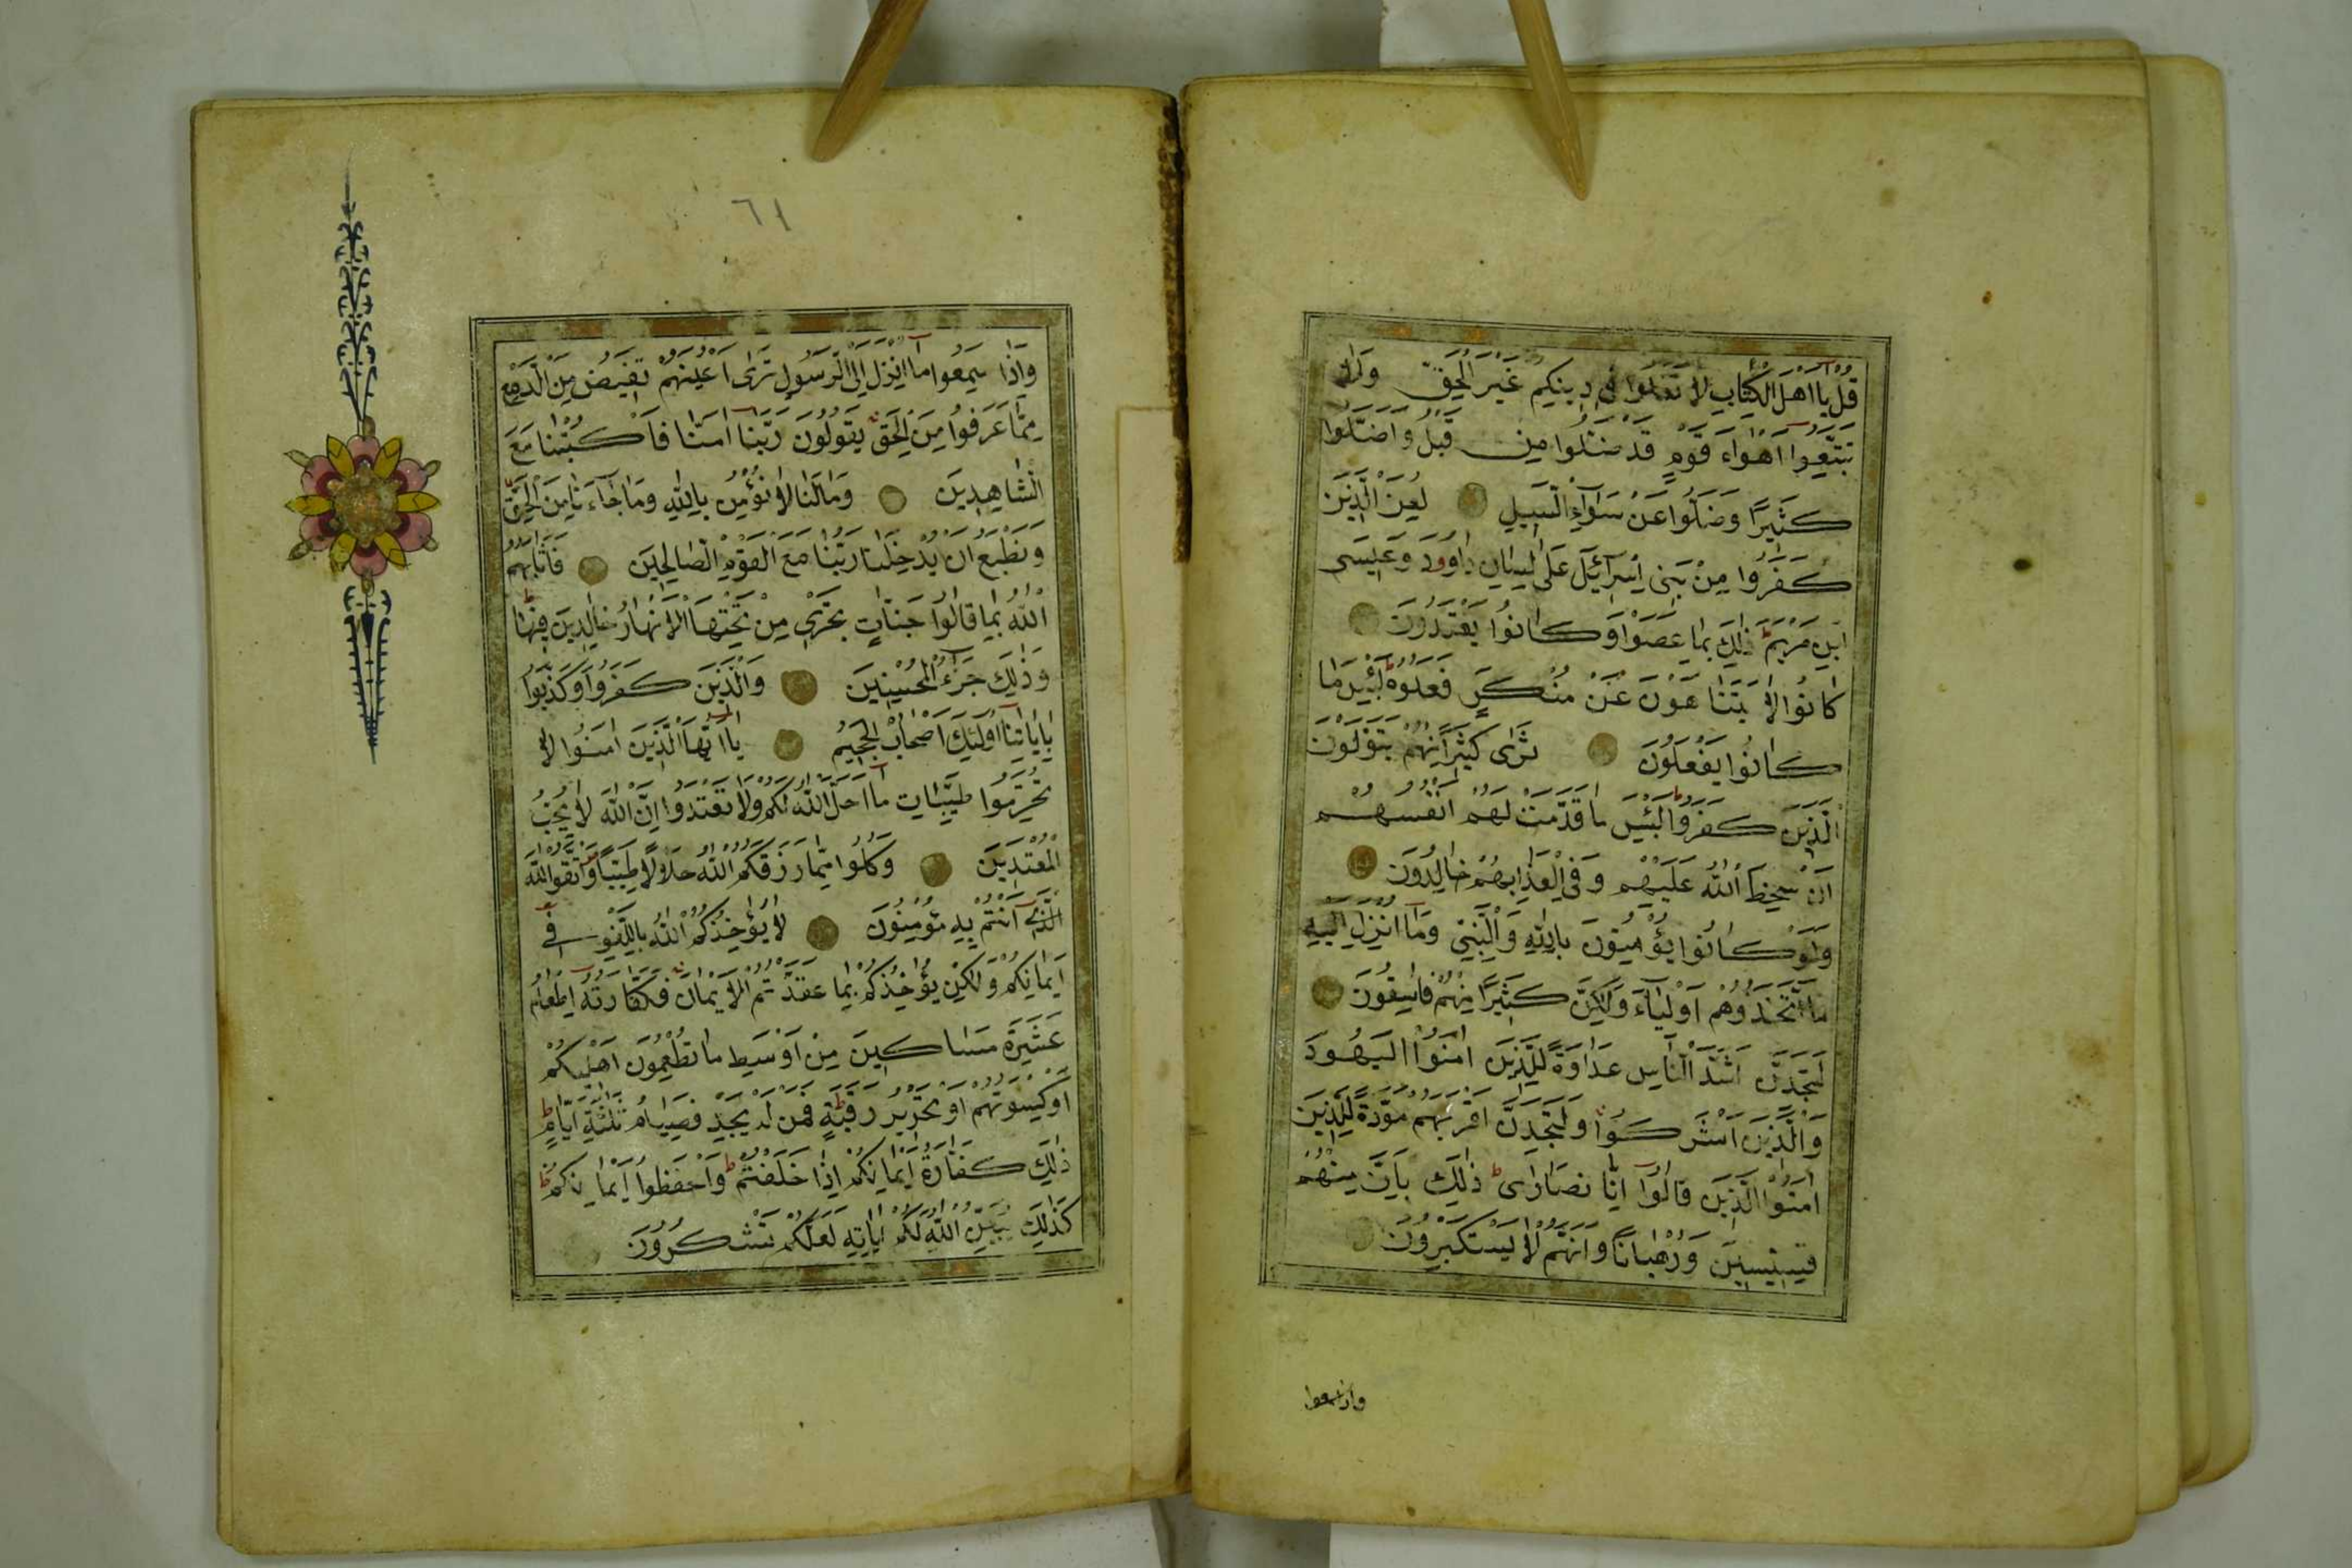 قُلْ يَا اَهْلَ الْكِتَابِ لَا تَغْلُوا فِي دِينِكُمْ غَيْرَ الْحَقِّ وَلَا
تَتَّبِعُوا اَهْوَاءَ قَوْمٍ قَدْ ضَلُّوا مِنْ قَبْلُ وَاَضَلُّوا
كَثِيرًا وَضَلُّوا عَنْ سَوَاءِ السَّبِيلِ لُعِنَ الَّذِينَ
كَفَرُوا مِنْ بَنِي اِسْرَائِلَ عَلَى لِسَانِ دَاوُودَ وَعِيسَى
ابْنِ مَرْيَمَ ذَلِكَ بِمَا عَصَوْا وَكَانُوا يَعْتَدُونَ
كَانُوا لَا يَتَنَاهَوْنَ عَنْ مُنْكَرٍ فَعَلُوهُ لَبِئْسَ مَا
كَانُوا يَفْعَلُونَ تَرَى كَثِيرًا مِنْهُمْ يَتَوَلَّوْنَ
الَّذِينَ كَفَرُوا لَبِئْسَ مَا قَدَّمَتْ لَهُمْ اَنْفُسُهُمْ
اَنْ سَخِطَ اللّٰهُ عَلَيْهِمْ وَفِي الْعَذَابِ هُمْ خَالِدُونَ
وَلَوْ كَانُوا يُؤْمِنُونَ بِاللّٰهِ وَالنَّبِيِّ وَمَا اُنْزِلَ اِلَيْهِ
مَا اتَّخَذُوهُمْ اَوْلِيَاءَ وَلَكِنَّ كَثِيرًا مِنْهُمْ فَاسِقُونَ
لَتَجِدَنَّ اَشَدَّ النَّاسِ عَدَاوَةً لِلَّذِينَ اٰمَنُوا الْيَهُودَ
وَالَّذِينَ اَشْرَكُوا وَلَتَجِدَنَّ اَقْرَبَهُمْ مَوَدَّةً لِلَّذِينَ
اٰمَنُوا الَّذِينَ قَالُوا اِنَّا نَصَارَى ذَلِكَ بِاَنَّ مِنْهُمْ
قِسِّيسِينَ وَرُهْبَانًا وَاَنَّهُمْ لَا يَسْتَكْبِرُونَ
واذا سمعوا
٦١
وَاِذَا سَمِعُوا مَا اُنْزِلَ اِلَى الرَّسُولِ تَرَى اَعْيُنَهُمْ تَفِيضُ مِنَ الدَّمْعِ
مِمَّا عَرَفُوا مِنَ الْحَقِّ يَقُولُونَ رَبَّنَا اٰمَنَّا فَاكْتُبْنَا مَعَ
الشَّاهِدِينَ وَمَا لَنَا لَا نُؤْمِنُ بِاللّٰهِ وَمَا جَاءَنَا مِنَ الْحَقِّ
وَنَطْمَعُ اَنْ يُدْخِلَنَا رَبُّنَا مَعَ الْقَوْمِ الصَّالِحِينَ فَاَثَابَهُمُ
اللّٰهُ بِمَا قَالُوا جَنَّاتٍ تَجْرِي مِنْ تَحْتِهَا الْاَنْهَارُ خَالِدِينَ فِيهَا
وَذَلِكَ جَزَاءُ الْمُحْسِنِينَ وَالَّذِينَ كَفَرُوا وَكَذَّبُوا
بِاٰيَاتِنَا اُولَئِكَ اَصْحَابُ الْجَحِيمِ يَا اَيُّهَا الَّذِينَ اٰمَنُوا لَا
تُحَرِّمُوا طَيِّبَاتِ مَا اَحَلَّ اللّٰهُ لَكُمْ وَلَا تَعْتَدُوا اِنَّ اللّٰهَ لَا يُحِبُّ
الْمُعْتَدِينَ وَكُلُوا مِمَّا رَزَقَكُمُ اللّٰهُ حَلَالًا طَيِّبًا وَاتَّقُوا اللّٰهَ
الَّذِي اَنْتُمْ بِهِ مُؤْمِنُونَ لَا يُؤَاخِذُكُمُ اللّٰهُ بِاللَّغْوِ فِي
اَيْمَانِكُمْ وَلَكِنْ يُؤَاخِذُكُمْ بِمَا عَقَّدْتُمُ الْاَيْمَانَ فَكَفَّارَتُهُ اِطْعَامُ
عَشَرَةِ مَسَاكِينَ مِنْ اَوْسَطِ مَا تُطْعِمُونَ اَهْلِيكُمْ
اَوْ كِسْوَتُهُمْ اَوْ تَحْرِيرُ رَقَبَةٍ فَمَنْ لَمْ يَجِدْ فَصِيَامُ ثَلٰثَةِ اَيَّامٍ
ذَلِكَ كَفَّارَةُ اَيْمَانِكُمْ اِذَا حَلَفْتُمْ وَاحْفَظُوا اَيْمَانَكُمْ
كَذَلِكَ يُبَيِّنُ اللّٰهُ لَكُمْ اٰيَاتِهِ لَعَلَّكُمْ تَشْكُرُونَ